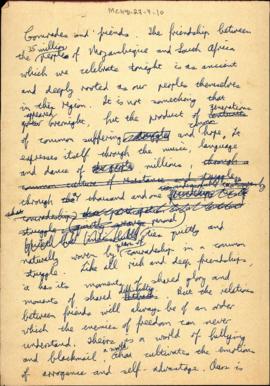 MCH92-29-4-10
Comrades and friends. The friendship between
35 million
the peoples of Mozambique and South Africa
which we celebrate tonight is as ancient
and deeply rooted as our peoples themselves
in this region. It is not something that
appeared generations
overnight, but the product of
of common suffering and hope. It
expresses itself through the music, language
and dance of millions, through
common culture of resistance and struggle
through the thousand and one
comradeship
struggle
ties quietly and
naturally woven by comradeship in a common
struggle. Like all rich and deep friendships
it has its moments of shared glory and
moments of shared But the relations
between friends will always be of an order
which the enemies of freedom can never
understand. Theirs is a world of bullying
and blackmail, that cultivates the emotions
of arrogance and self-advantage. Ours is